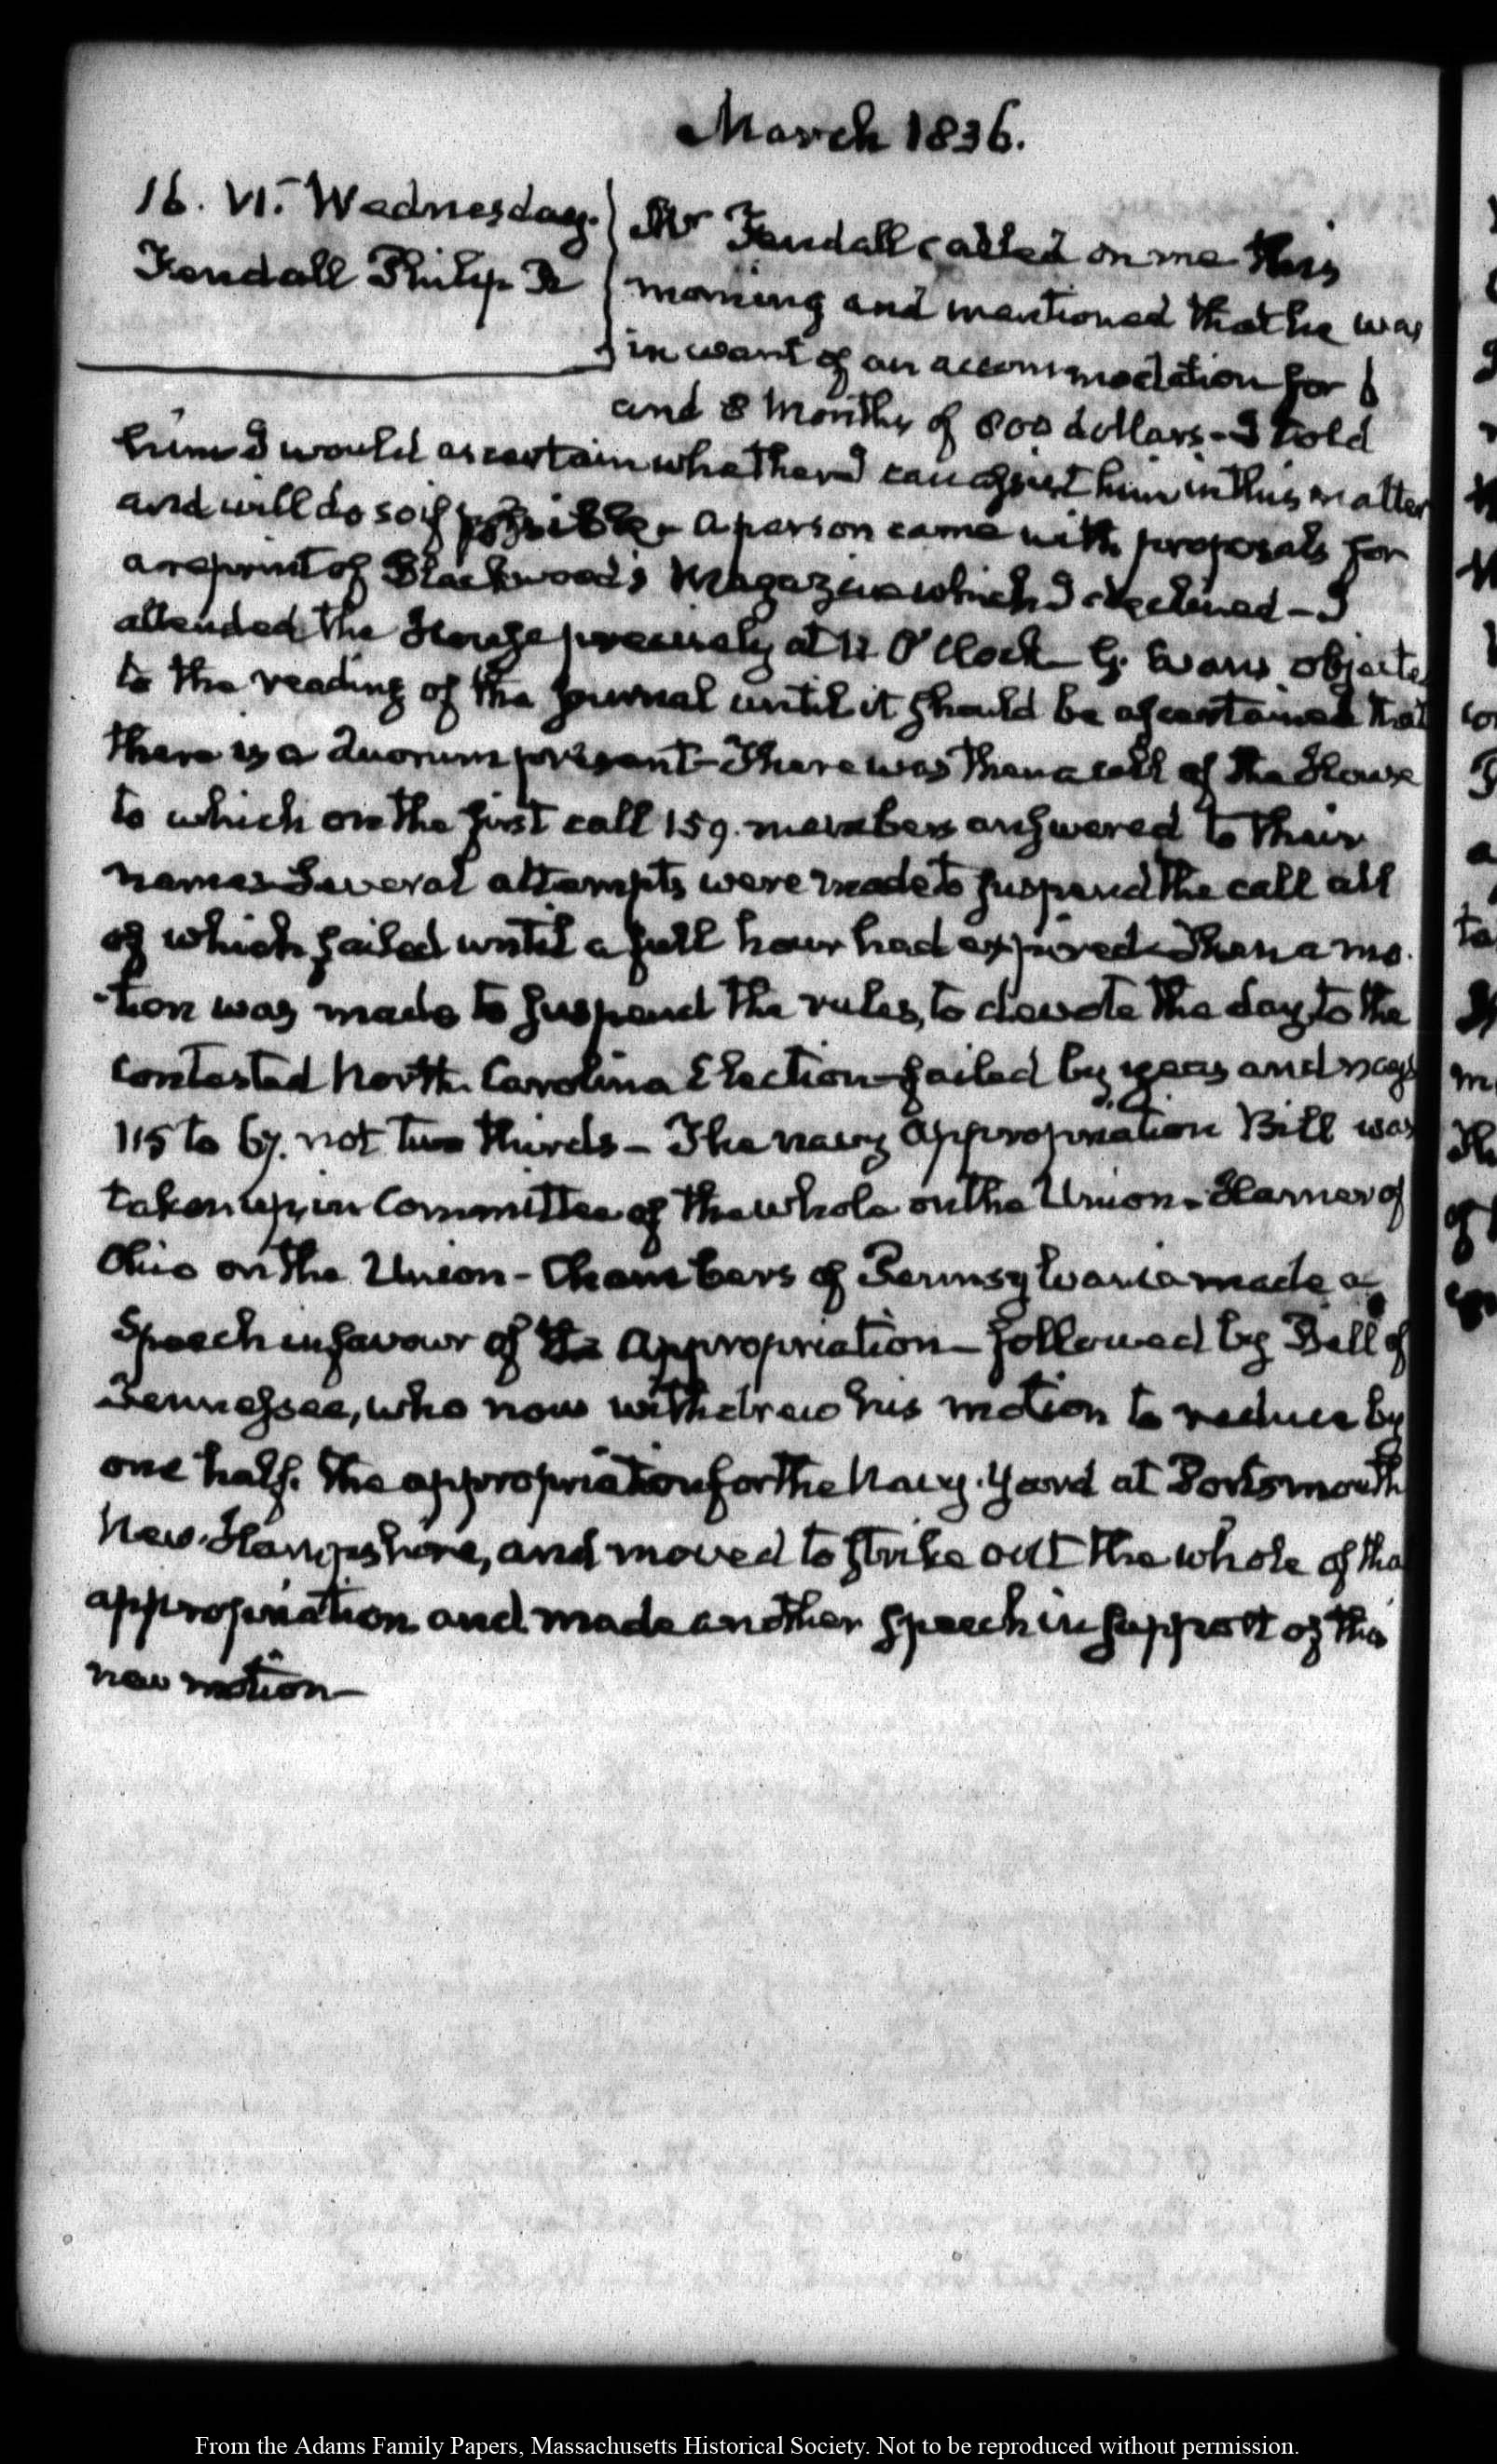 March 1836.
16. VI. Wednesday.
Fendall Philip R
Mr Fendall called on me this
morning and mentioned that he was
in want of an accommodation for 6
and 8 Months of 800 dollars - I told
him I would ascertain whether I can assist him in this matter
and will do so if possible - A person came with proposals for
a reprint of Blackwood's Magazine which I declined - I
attended the House precisely at 12 O'Clock - G. Evans objected
to the reading of the Journal until it should be ascertained that
there is a Quorum present - There was then a call of the House
to which on the first call 159. members answered to their
names - Several attempts were made to suspend the call all
of which failed until a full hour had expired - Then a mo-
-tion was made to suspend the rules, to devote the day to the
Contested North Carolina Election - failed by yeas and nays
115 to 67. not two thirds - The navy Appropriation Bill was
taken up, in Committee of the whole on the Union - Hamer of
Ohio on the Union - Chambers of Pennsylvania made a
Speech in favour of the Appropriation - followed by Bell of
Tennessee, who now withdrew his motion to reduce by
one half. the appropriation for the Navy-Yard at Portsmouth
New-Hampshire, and moved to strike out the whole of the
appropriation and made another speech in support of this
new motion -
From the Adams Family Papers, Massachusetts Historical Society. Not to be reproduced without permission.